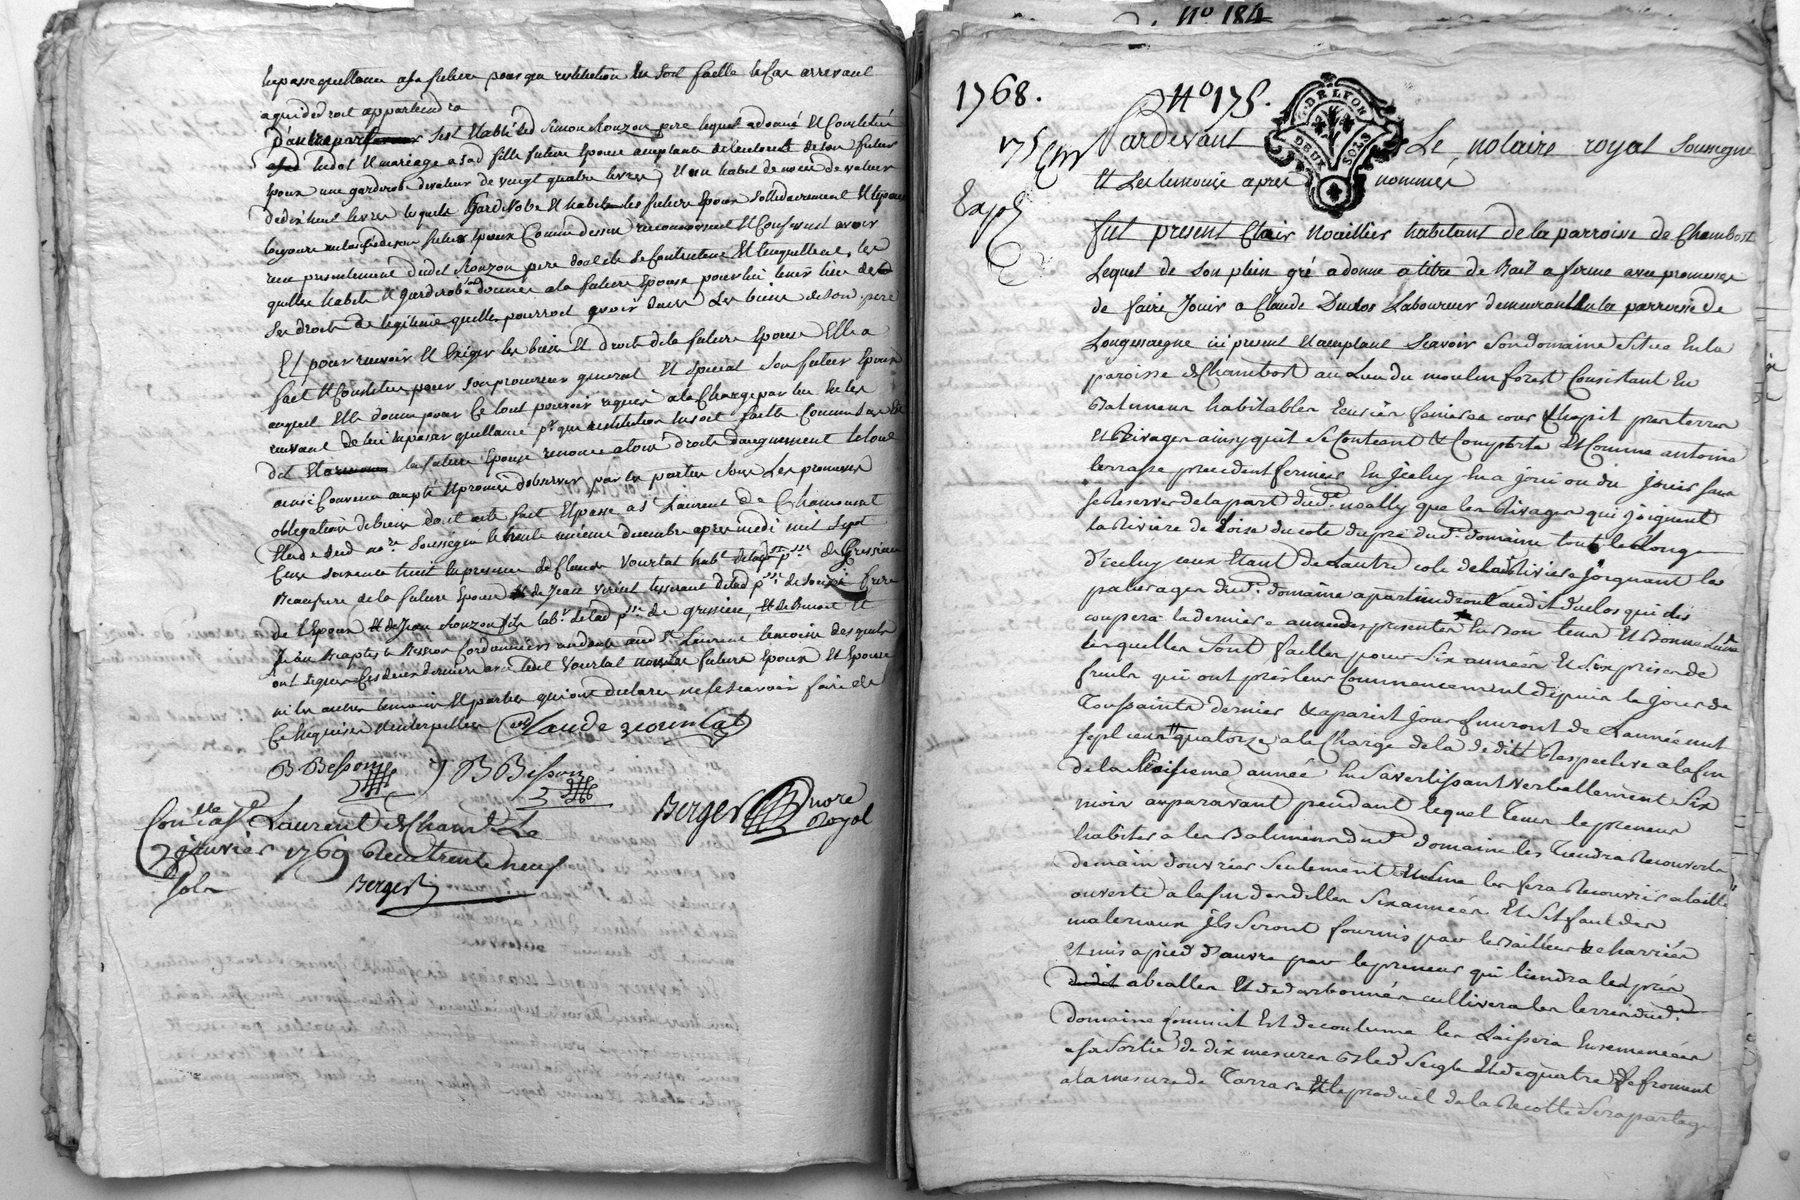 passer quittance a sa future pour que restitution en soit faitte le cas arrivant
a qui de droit appartiendra
D'autre part sest Etabli led Simon Rouzon pere lequel a donné Et Constitué
en dot Et mariage a sad fille future Epouse acceptante de l'autorité de son futur
Epoux une garderobe de valeur de vingt quatre livres Et un habit de noces de valeur
de dix huit livres lesquels Garderobe Et habits les future Epoux Sollidairement Et Epouse
toujours de son futur Epoux Comme dessus reconnoissent Et Confessent avoir
reçu presentement dudit Rouzon pere dont ils se Contentent Et l'en quittent, les
quelles habits Et garderobe donnés a la future Epouse pour lui tenir lieu de
ses droits de legitime quelle pourroit avoir dans Les biens de son pere
Et pour recevoir Et Exiger les biens Et droits de la future Epouse Elle a
fait Et Constitue pour son procureur general Et special son futur Epoux
auquel Elle donne pour Ce tout pouvoir requis a la Charge par lui En les
recevant de lui En passer quittance pr que restitution En soit faitte Comme dessus
dit la future Epouse renonce a tous droits d'augment le tout
ainsi Convenu accepté Et promis d'observer par les parties sous Les promesses
obligation de biens dont acte fait Et passé a St Laurent de Chamousset
Etude dud nore Soussigné le trente unieme decembre apres midi mil sept
Cent soixante huit En presence de Claude Vourlat habt de lad psse de Gressieu
Beaufrere de la future Epouse Et de Jean tisserant de lad psse de Souzi frere
de l'Epoux Et de Jean Rouzon fils labr de lad psse de grissieu, Et de Benoit Et
Jean Baptiste Besson Cordonniers audit St Laurent temoins desquels
ont signé Ces deux derniers avec ledit Vourlat non les future Epoux Et Epouse
ni les autres temoins Et parties qui ont declaré ne le scavoir faire de
Ce Enquis Et Interpellés Claude vourlat
B Besson B Besson
Berger nore Royal
Conlle a St Laurent de Chamt Le
2 janvier 1769 Reçu trente neuf
sols Berger
No 184
1768. No 175.
175
DE LYON
DEUX SOLS
Pardevant Le notaire royal Soussigné
Et Les temoins apres nommés
Exp
fut present Clair Noaillier habitant de la parroisse de Chambost
Lequel de son plein gré a donné a titre de Bail a ferme avec promesse
de faire Jouir a Claude Duclos Laboureur demeurant En la parroisse de
Longessaigne ici present Et acceptant Scavoir son domaine situé En la
paroisse de Chambost au Lieu du moulin forest Consistant En
Batimens habitables Ecuries feniere cour Chapit prés terres
Et Rivages ainsy quil se Contient Et Comporte Et Comme antoine
terrasse precedent fermier En Jceluy En a joui ou du jouir sans
se reserver de la part dudt noally que les Rivages qui joignent
la Riviere de Loise du cote du pré dudt domaine tout le Long
d'iceluy ceux Etant de L'autre cote de lad Riviere Joignant les
paturages dudt domaine apartiendront audit Duclos qui les
coupera la derniere année des presentes En Bon tems Et Bonne Lune
lesquelles sont faittes pour six années Et six prises de
fruits qui ont pris leur Commencement depuis le jour de
Toussaints dernier Et a pareil jour finiront de L'année mil
sept cent quatorze a la Charge de la dedite Respective a la fin
de la troisieme année En s'avertissant verballement six
mois auparavant pendant lequel tems le preneur
habitera les Batimens dudt domaine les tiendra Recouverts
de main d'ouvrier seulement Et même les fera Recouvrir a taille
ouverte a la fin desdittes six années Et s'il faut des
materiaux ils seront fournis par le Bailleur Et charriés
Et mis a pied d'œuvre par le preneur qui tiendra led prés
abeallés Et dedarbonnés cultivera les terres dudt
domaine comme il Est de coutume les Laissera Ensemencées
a sa sortie de dix mesures Bled Seigle Et de quatre de froment
a la mesure de Tarrare Et le produit de la Recolte Sera partagé